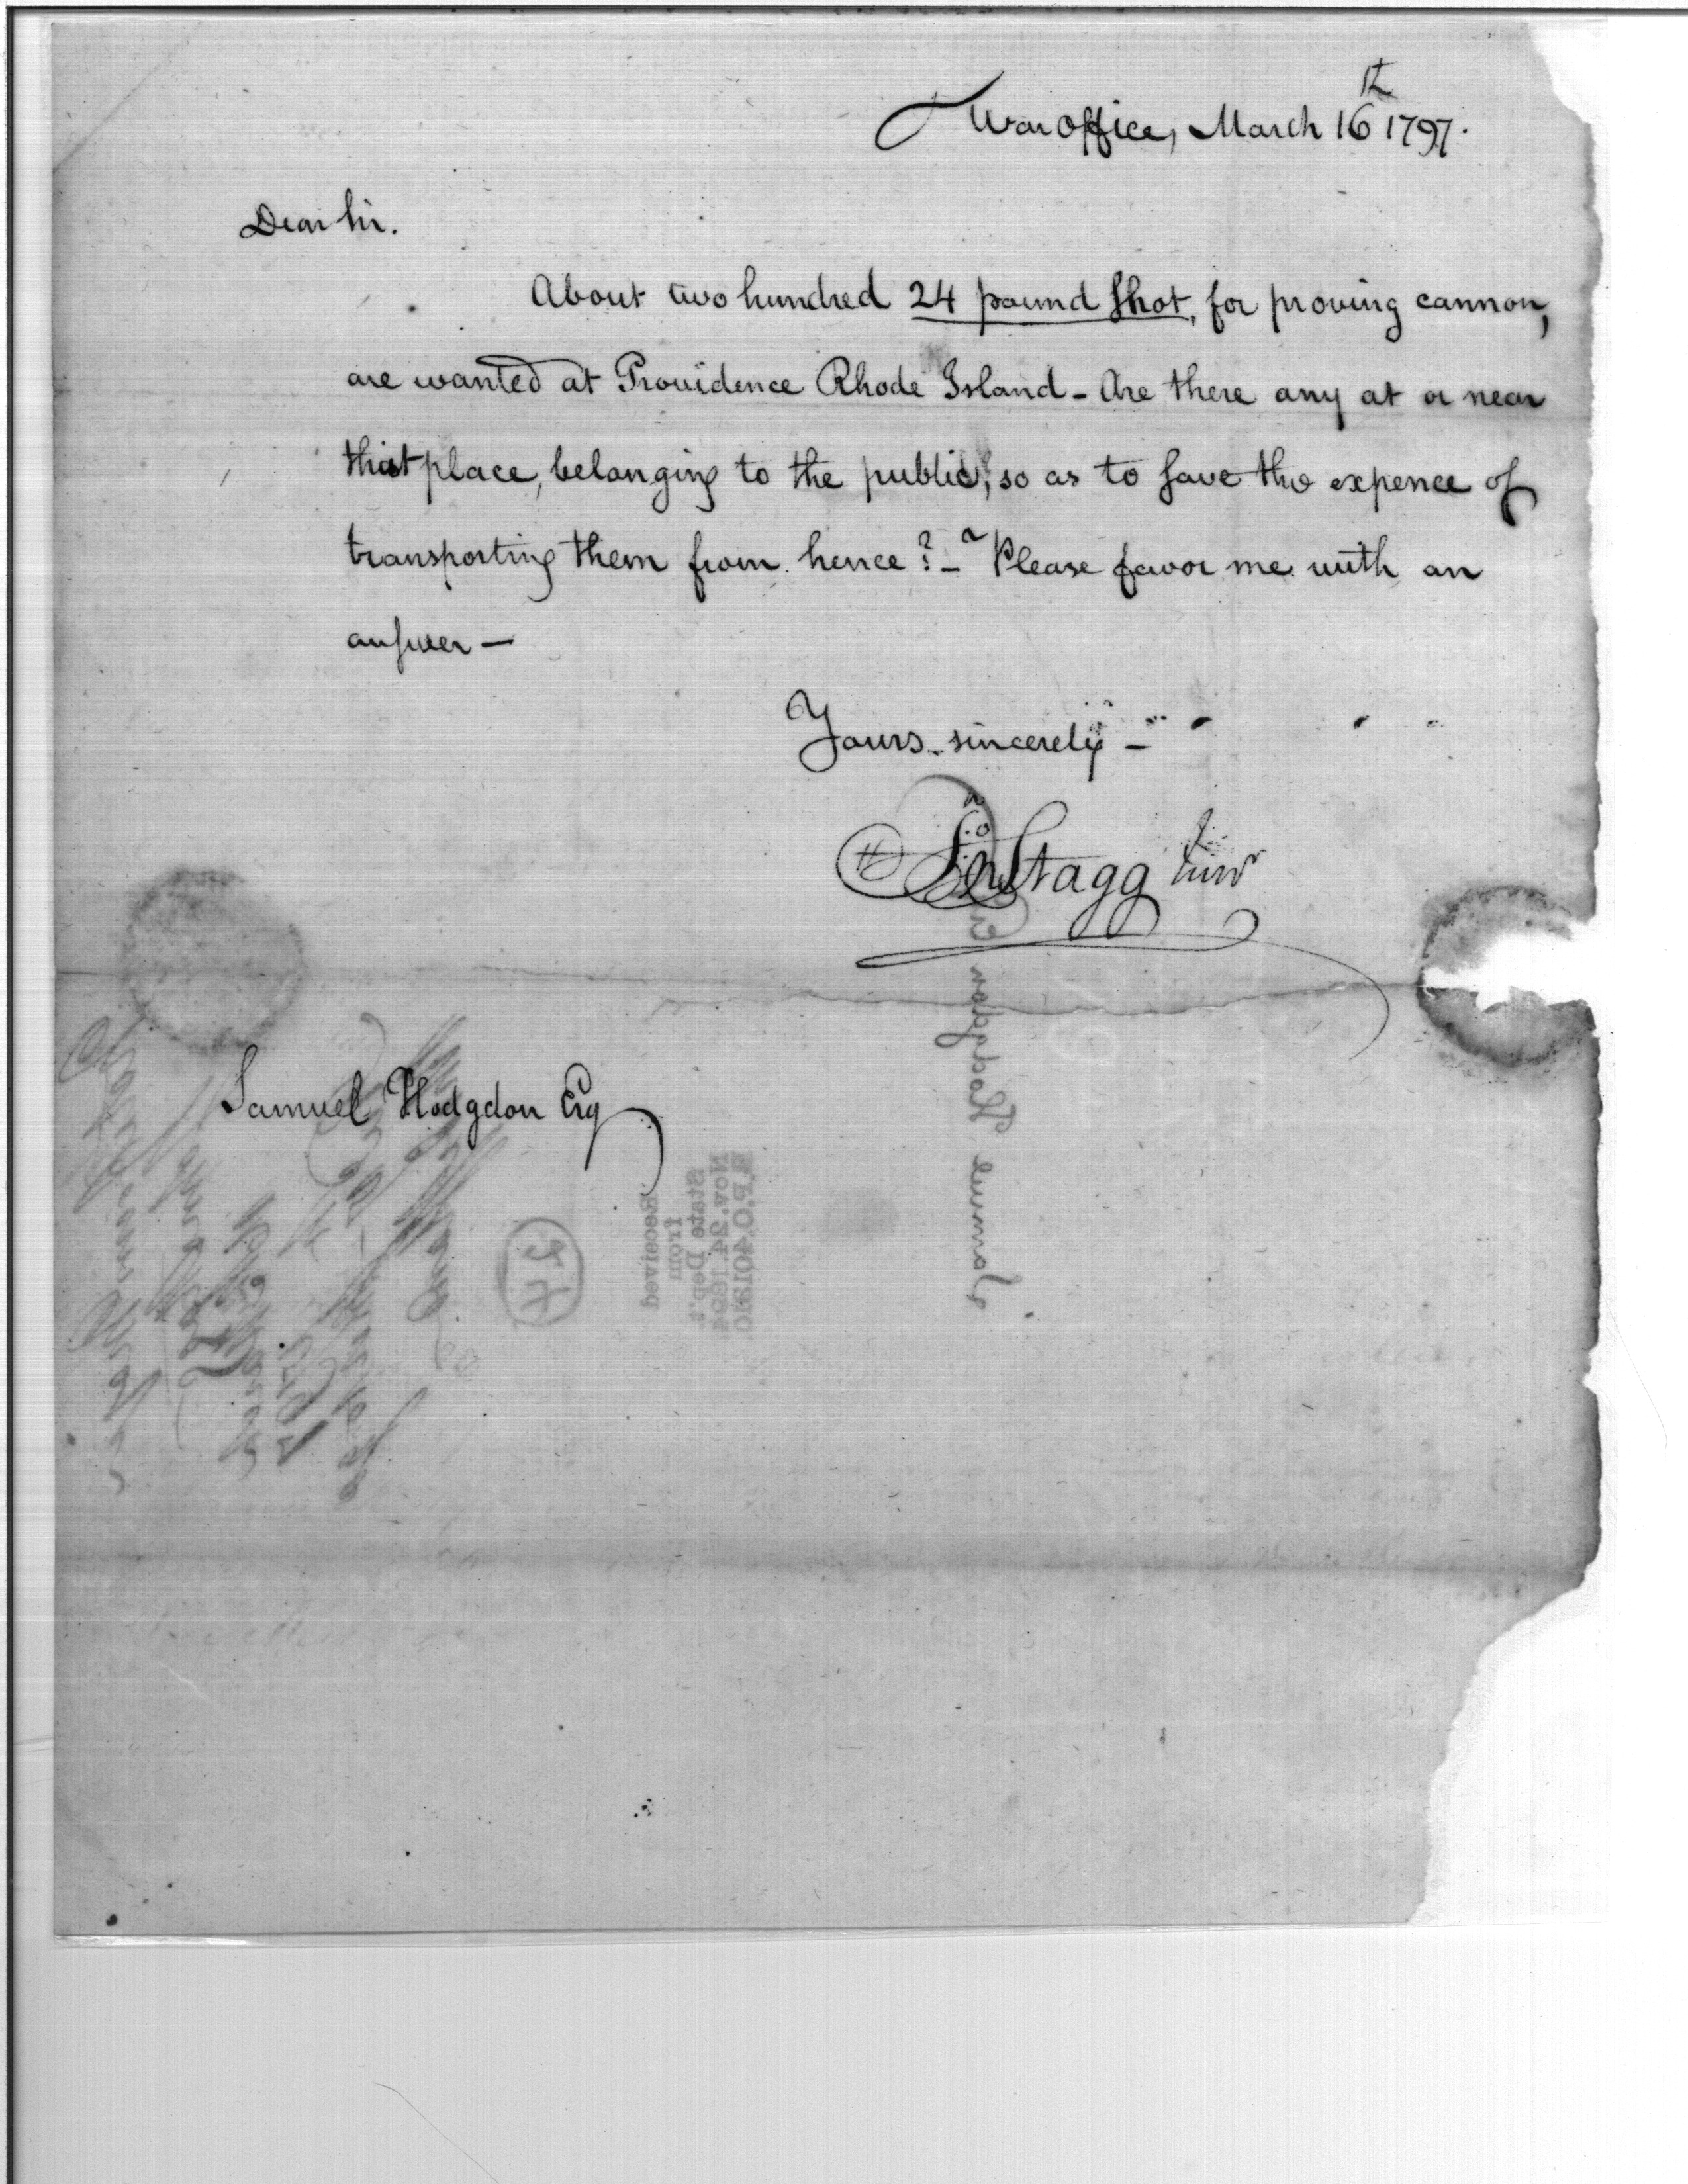 War Office, March 16th 1797.
Dear Sir.
About two hundred 24 pound Shot, for proving cannon,
are wanted at Providence Rhode Island - Are there any at or near
that place, belonging to the public, so as to save the expence of
transporting them from hence? - Please favor me with an
answer —
Yours sincerely -
Jno Stagg Junr
Samuel Hodgdon Esq
Samuel Hodgdon Esqr
54
Received
from
State Dep't.
Nov. 24. 1894